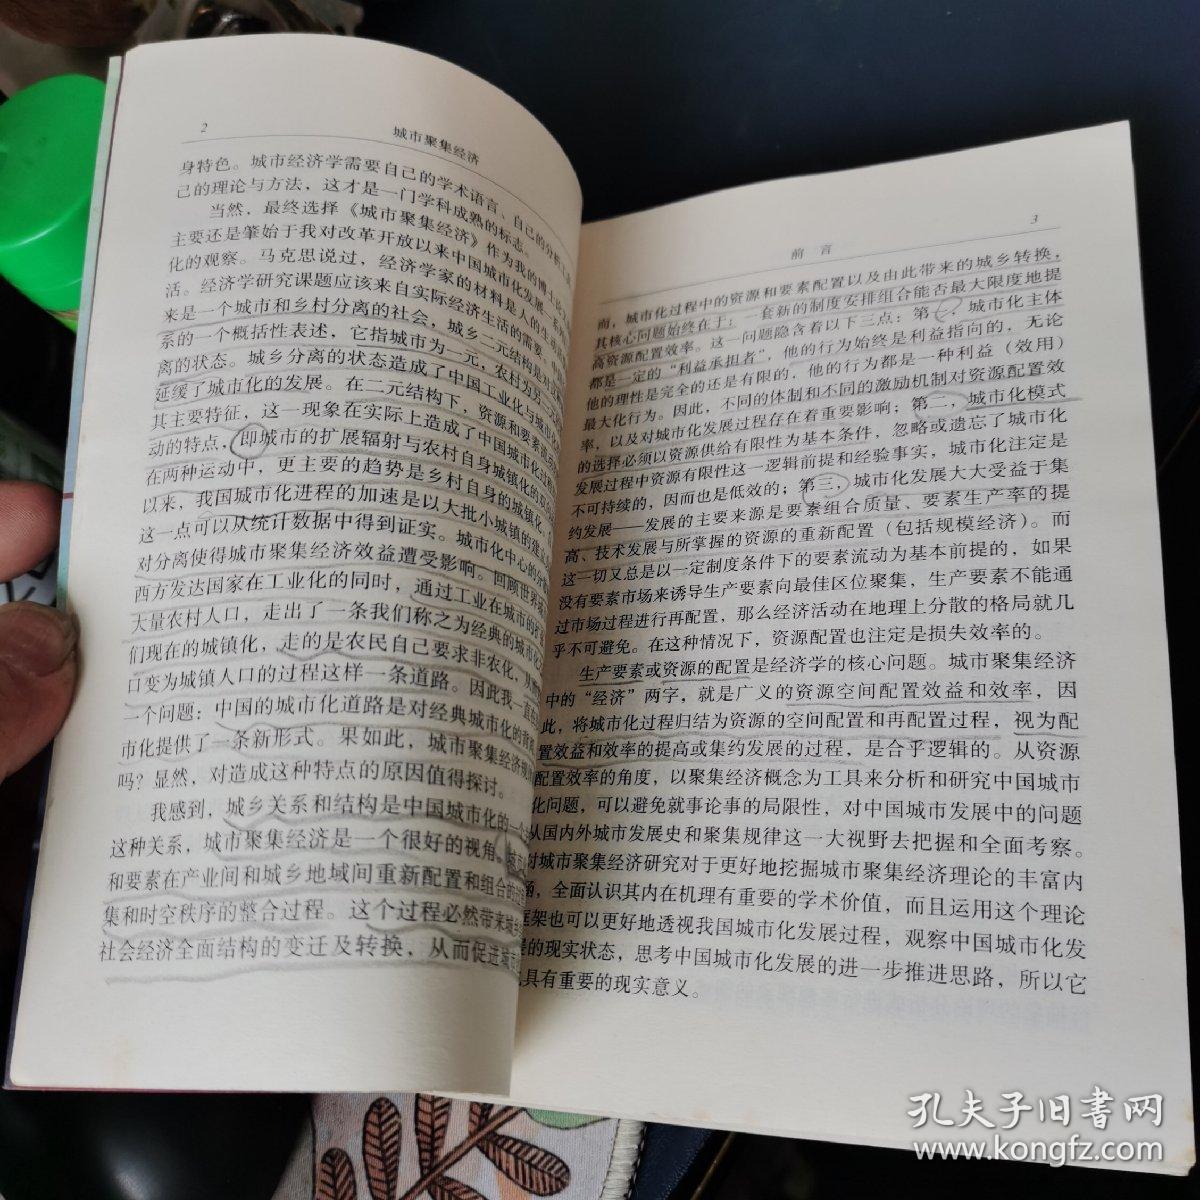 2
城市聚集经济
身特色。城市经济学需要自己的学术语言、自己的分析工
己的理论与方法，这才是一门学科成熟的标志。
当然，最终选择《城市聚集经济》作为我的博士
主要还是肇始于我对改革开放以来中国城市化发展一系列
化的观察。马克思说过，经济学家的材料是人的生动
活。经济学研究课题应该来自实际经济生活的需要。中国
来是一个城市和乡村分离的社会，城乡二元结构是对
系的一个概括性表述，它指城市为一元，农村为另一元
离的状态。城乡分离的状态造成了中国工业化与城市化
延缓了城市化的发展。在二元结构下，资源和要素流
其主要特征，这一现象在实际上造成了中国城市化过程
动的特点，即城市的扩展辐射与农村自身城镇化的双
在两种运动中，更主要的趋势是乡村自身的城镇化。
以来，我国城市化进程的加速是以大批小城镇的建立
这一点可以从统计数据中得到证实。城市化中心的分散
对分离使得城市聚集经济效益遭受影响。回顾世界城
西方发达国家在工业化的同时，通过工业在城市的
大量农村人口，走出了一条我们称之为经典的城市化
们现在的城镇化，走的是农民自己要求非农化，从
口变为城镇人口的过程这样一条道路。因此我一直
一个问题：中国的城市化道路是对经典城市化的背离
市化提供了一条新形式。果如此，城市聚集经济规
吗？显然，对造成这种特点的原因值得探讨。
我感到，城乡关系和结构是中国城市化的一个
这种关系，城市聚集经济是一个很好的视角。城市
和要素在产业间和城乡地域间重新配置和组合的
集和时空秩序的整合过程。这个过程必然带来城乡
社会经济全面结构的变迁及转换，从而促进城市
前言
3
而，城市化过程中的资源和要素配置以及由此带来的城乡转换，
其核心问题始终在于：一套新的制度安排组合能否最大限度地提
高资源配置效率。这一问题隐含着以下三点：第一，城市化主体
都是一定的“利益承担者”，他的行为始终是利益指向的，无论
他的理性是完全的还是有限的，他的行为都是一种利益（效用）
最大化行为。因此，不同的体制和不同的激励机制对资源配置效
率，以及对城市化发展过程存在着重要影响；第二，城市化模式
的选择必须以资源供给有限性为基本条件，忽略或遗忘了城市化
发展过程中资源有限性这一逻辑前提和经验事实，城市化注定是
不可持续的，因而也是低效的；第三，城市化发展大大受益于集
约发展——发展的主要来源是要素组合质量、要素生产率的提
高、技术发展与所掌握的资源的重新配置（包括规模经济）。而
这一切又总是以一定制度条件下的要素流动为基本前提的，如果
没有要素市场来诱导生产要素向最佳区位聚集，生产要素不能通
过市场过程进行再配置，那么经济活动在地理上分散的格局就几
乎不可避免。在这种情况下，资源配置也注定是损失效率的。
生产要素或资源的配置是经济学的核心问题。城市聚集经济
中的“经济”两字，就是广义的资源空间配置效益和效率，因
此，将城市化过程归结为资源的空间配置和再配置过程，视为配
置效益和效率的提高或集约发展的过程，是合乎逻辑的。从资源
配置效率的角度，以聚集经济概念为工具来分析和研究中国城市
化问题，可以避免就事论事的局限性，对中国城市发展中的问题
从国内外城市发展史和聚集规律这一大视野去把握和全面考察。
对城市聚集经济研究对于更好地挖掘城市聚集经济理论的丰富内
涵，全面认识其内在机理有重要的学术价值，而且运用这个理论
框架也可以更好地透视我国城市化发展过程，观察中国城市化发
展的现实状态，思考中国城市化发展的进一步推进思路，所以它
具有重要的现实意义。
孔夫子旧书网
www.kongfz.com